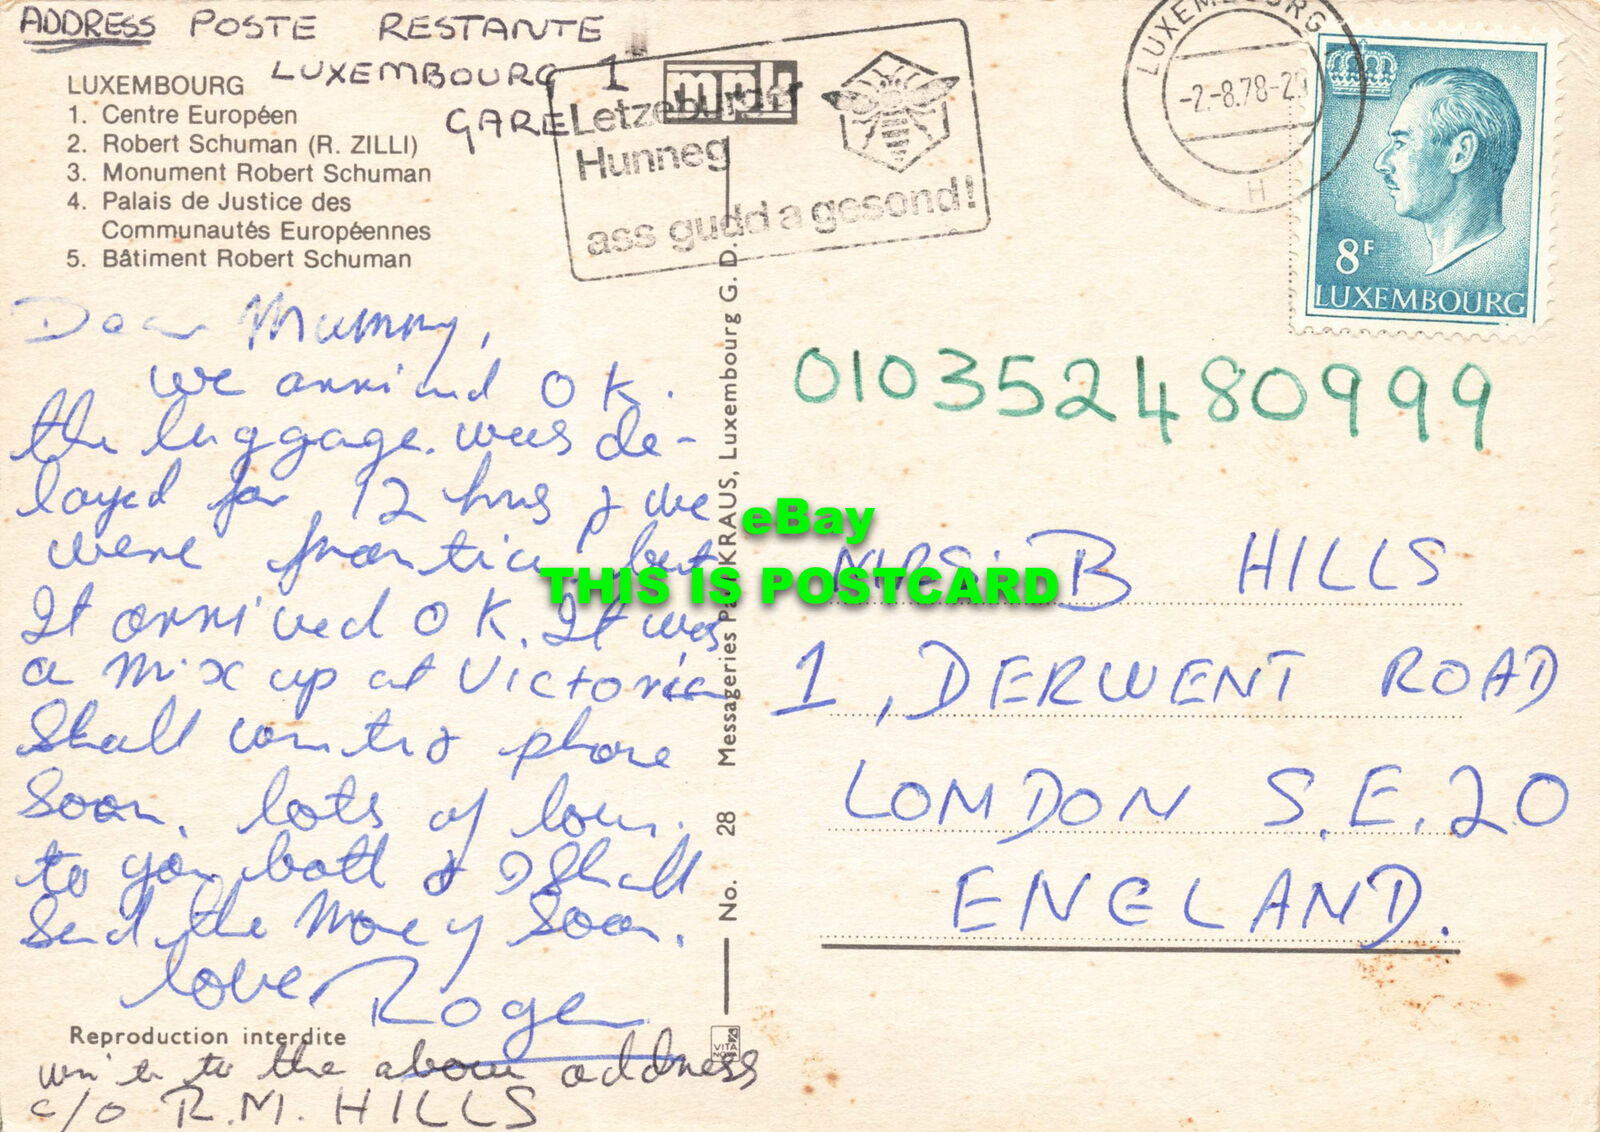 ADDRESS POSTE RESTANTE
LUXEMBOURG 1
GARE
LUXEMBOURG
1. Centre Européen
2. Robert Schuman (R. ZILLI)
3. Monument Robert Schuman
4. Palais de Justice des
Communautés Européennes
5. Bâtiment Robert Schuman
Letzeburger
Hunneg
ass gudd a gesond!
mpk
LUXEMBOURG
-2.-8.78-20
H
8F
LUXEMBOURG
Dear Mummy,
we arrived OK.
the luggage was de-
layed for 12 hrs & we
were frantic but
It arrived OK. It was
a mix up at Victoria
Shall write & phone
soon. lots of love.
to you both & I shall
send the money soon.
love Roger
Reproduction interdite
write to the above address
c/o R.M. HILLS
No. 28 Messageries Paul KRAUS, Luxembourg G. D.
VITA
NOVA
010352480999
eBay
THIS IS POSTCARD
MRS. B HILLS
1, DERWENT ROAD
LONDON S.E.20
ENGLAND.